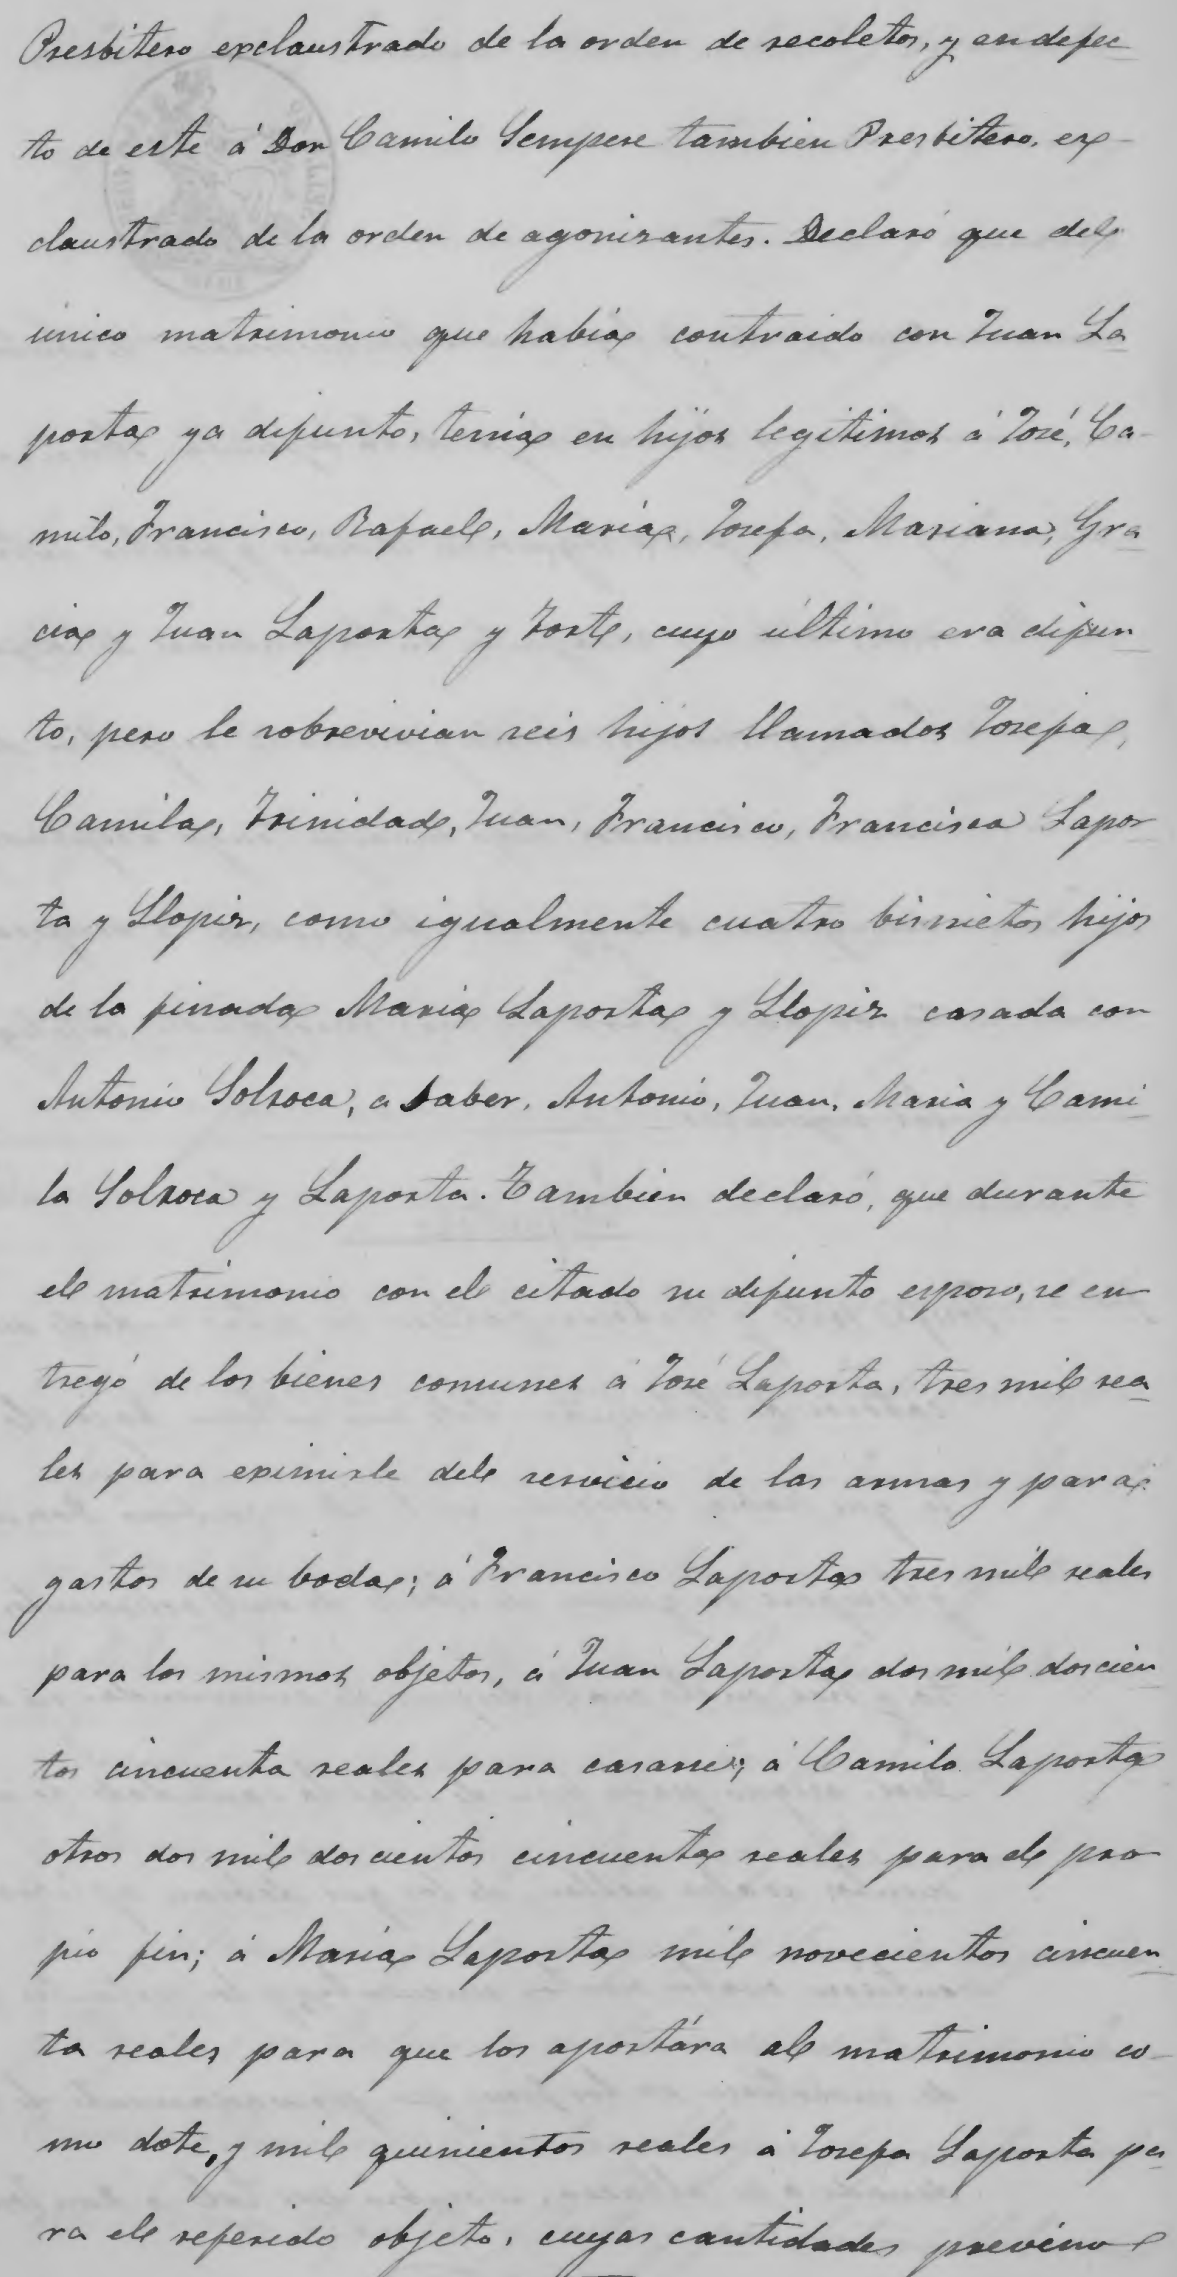 Presbitero exclaustrado de la orden de recoletos, y en defec
to de este á Don Camilo Sempere tambien Presbitero, ex-
claustrado de la orden de agonizantes. Declaró que del
único matrimonio que había contraido con Juan La
porta ya difunto, tenía en hijos legitimos á José, Ca-
milo, Francisco, Rafael, María, Josefa, Mariana, Gra
cia y Juan Laporta y Fort, cuyo último era difun
to, pero le sobrevivian seis hijos llamados Josefa,
Camila, Trinidad, Juan, Francisco, Francisca Lapor
ta y Llopiz, como igualmente cuatro bisnietos hijos
de la finada María Laporta y Llopiz casada con
Antonio Solroca, a saber, Antonio, Juan, Maria y Cami
la Solroca y Laporta. Tambien declaró, que durante
el matrimonio con el citado su difunto esposo, se en
tregó de los bienes comunes á José Laporta, tres mil rea
les para eximirle del servicio de las armas y para
gastos de su boda; á Francisco Laporta tres mil reales
para los mismos objetos, á Juan Laporta dos mil doscien
tos cincuenta reales para casarse; á Camilo Laporta
otros dos mil doscientos cincuenta reales para el pro
pio fin; á María Laporta mil novecientos cincuen
ta reales para que los aportára al matrimonio co-
mo dote, y mil quinientos reales á Josefa Laporta pa
ra el referido objeto, cuyas cantidades previno